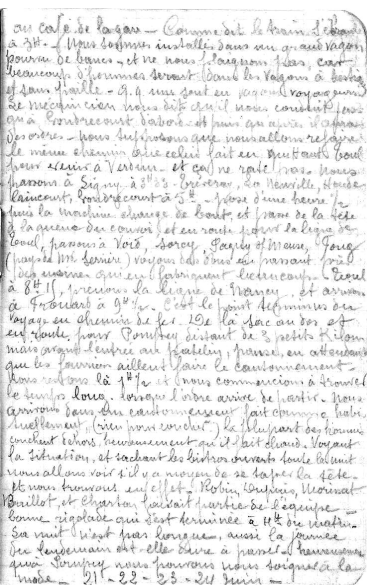 au café de la gare - Comme dit le train s'ébranle
à 3h - Nous sommes installés dans un grand wagon
pourvu de bancs, et ne nous plaignons pas, car
beaucoup d'hommes seront dans les wagons à bestiaux
et sans paille - q.q. uns sont en wagons voyageurs
Le mécanicien nous dit qu'il nous conduit jus
qu'à Gondrecourt d'abord - et puis qu'après il aura
des ordres - nous supposons que nous allons refaire
le même chemin que celui fait en quittant Toul
pour venir à Verdun - et ça ne rate pas. Nous
passons à Ligny à 3h - Tréveray, La Neuville, Houde
laincourt, Gondrecourt à 5h - pose d'une heure ½
puis la machine change de bout, et passe de la tête
à la queue du convoi, et en route pour la ligne de
Toul, passons à Void, Sorcy, Pagny s/ Meuse, Foug
(pays de Mr ) voyons des en passant près
des usines qui en fabriquent beaucoup - Toul
à 8h 15, prenons la ligne de Nancy, et arrivons
à Frouard à 9h ½. C'est le point terminus du
voyage en chemin de fer. De là sac au dos et
en route, pour Pompey distant de 3 petits kilom.
mais avant l'entrée au patelin, pause, en attendant
que les fourriers aillent faire le cantonnement -
Nous restons là 1h ½ et nous commencions à trouver
le temps long, lorsque l'ordre arrive de partir. Nous
arrivons dans un cantonnement fait comme habi
tuellement, (rien pour coucher) la plupart des hommes
couchent dehors, heureusement qu'il fait chaud. Voyant
la situation, et sachant les bistros ouverts toute la nuit
nous allons voir s'il y a moyen de se taper la tête -
et nous trouvons en effet - Robin, Dupuis, Morinat
Bouillot, et Charton faisait partie de l'équipe -
bonne rigolade qui s'est terminée à 4h du matin -
La nuit n'est pas longue, aussi la journée
du lendemain est-elle dure à passer - heureusement
qu'à Pompey nous pouvons nous soigner à la
mode - 21 - 22 - 23 - 24 Juin -